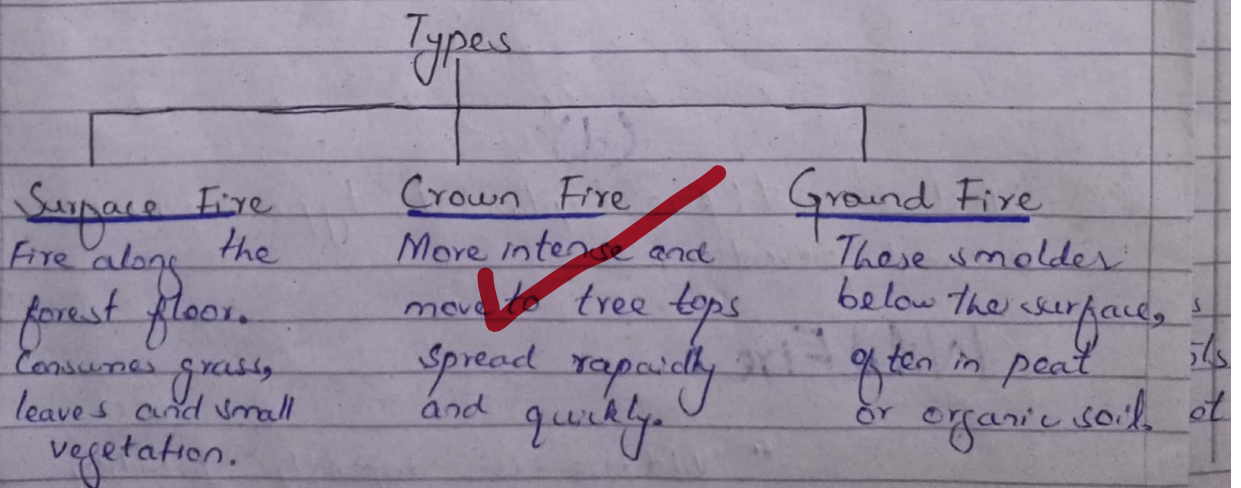 Types
Surface Fire
Fire along the
forest floor.
Consumes grass,
leaves and small
vegetation.
Crown Fire
More intense and
move to tree tops
spread rapaidly
and quickly.
Ground Fire
These smolder
below the surface,
often in peat
or organic soil.
s
ot